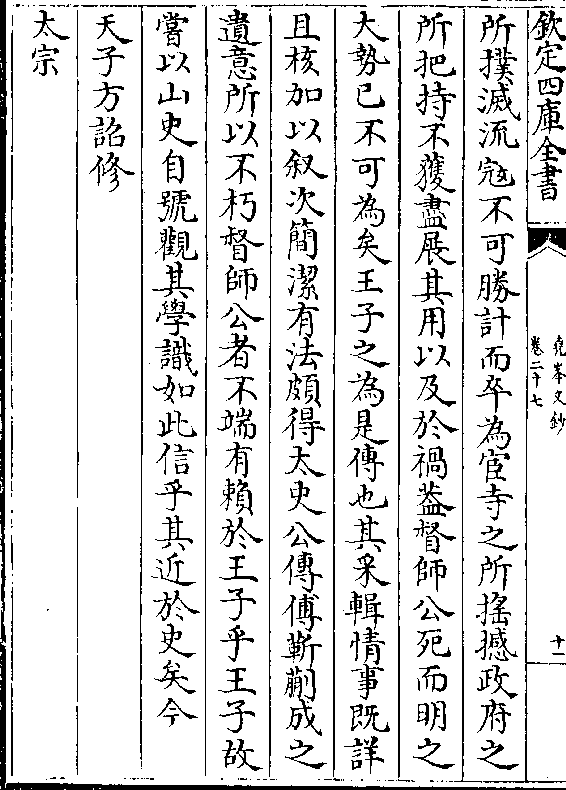 欽定四庫全書
堯峯文鈔
卷二十七
十一
所撲滅流冦不可勝計而卒為宦寺之所揺撼政府之
所把持不獲盡展其用以及於禍葢督師公死而明之
大勢已不可為矣王子之為是傳也其采輯情事既詳
且核加以叙次簡潔有法頗得太史公傳傅靳蒯成之
遺意所以不朽督師公者不端有賴於王子乎王子故
嘗以山史自號觀其學識如此信乎其近於史矣今
天子方詔修
太宗